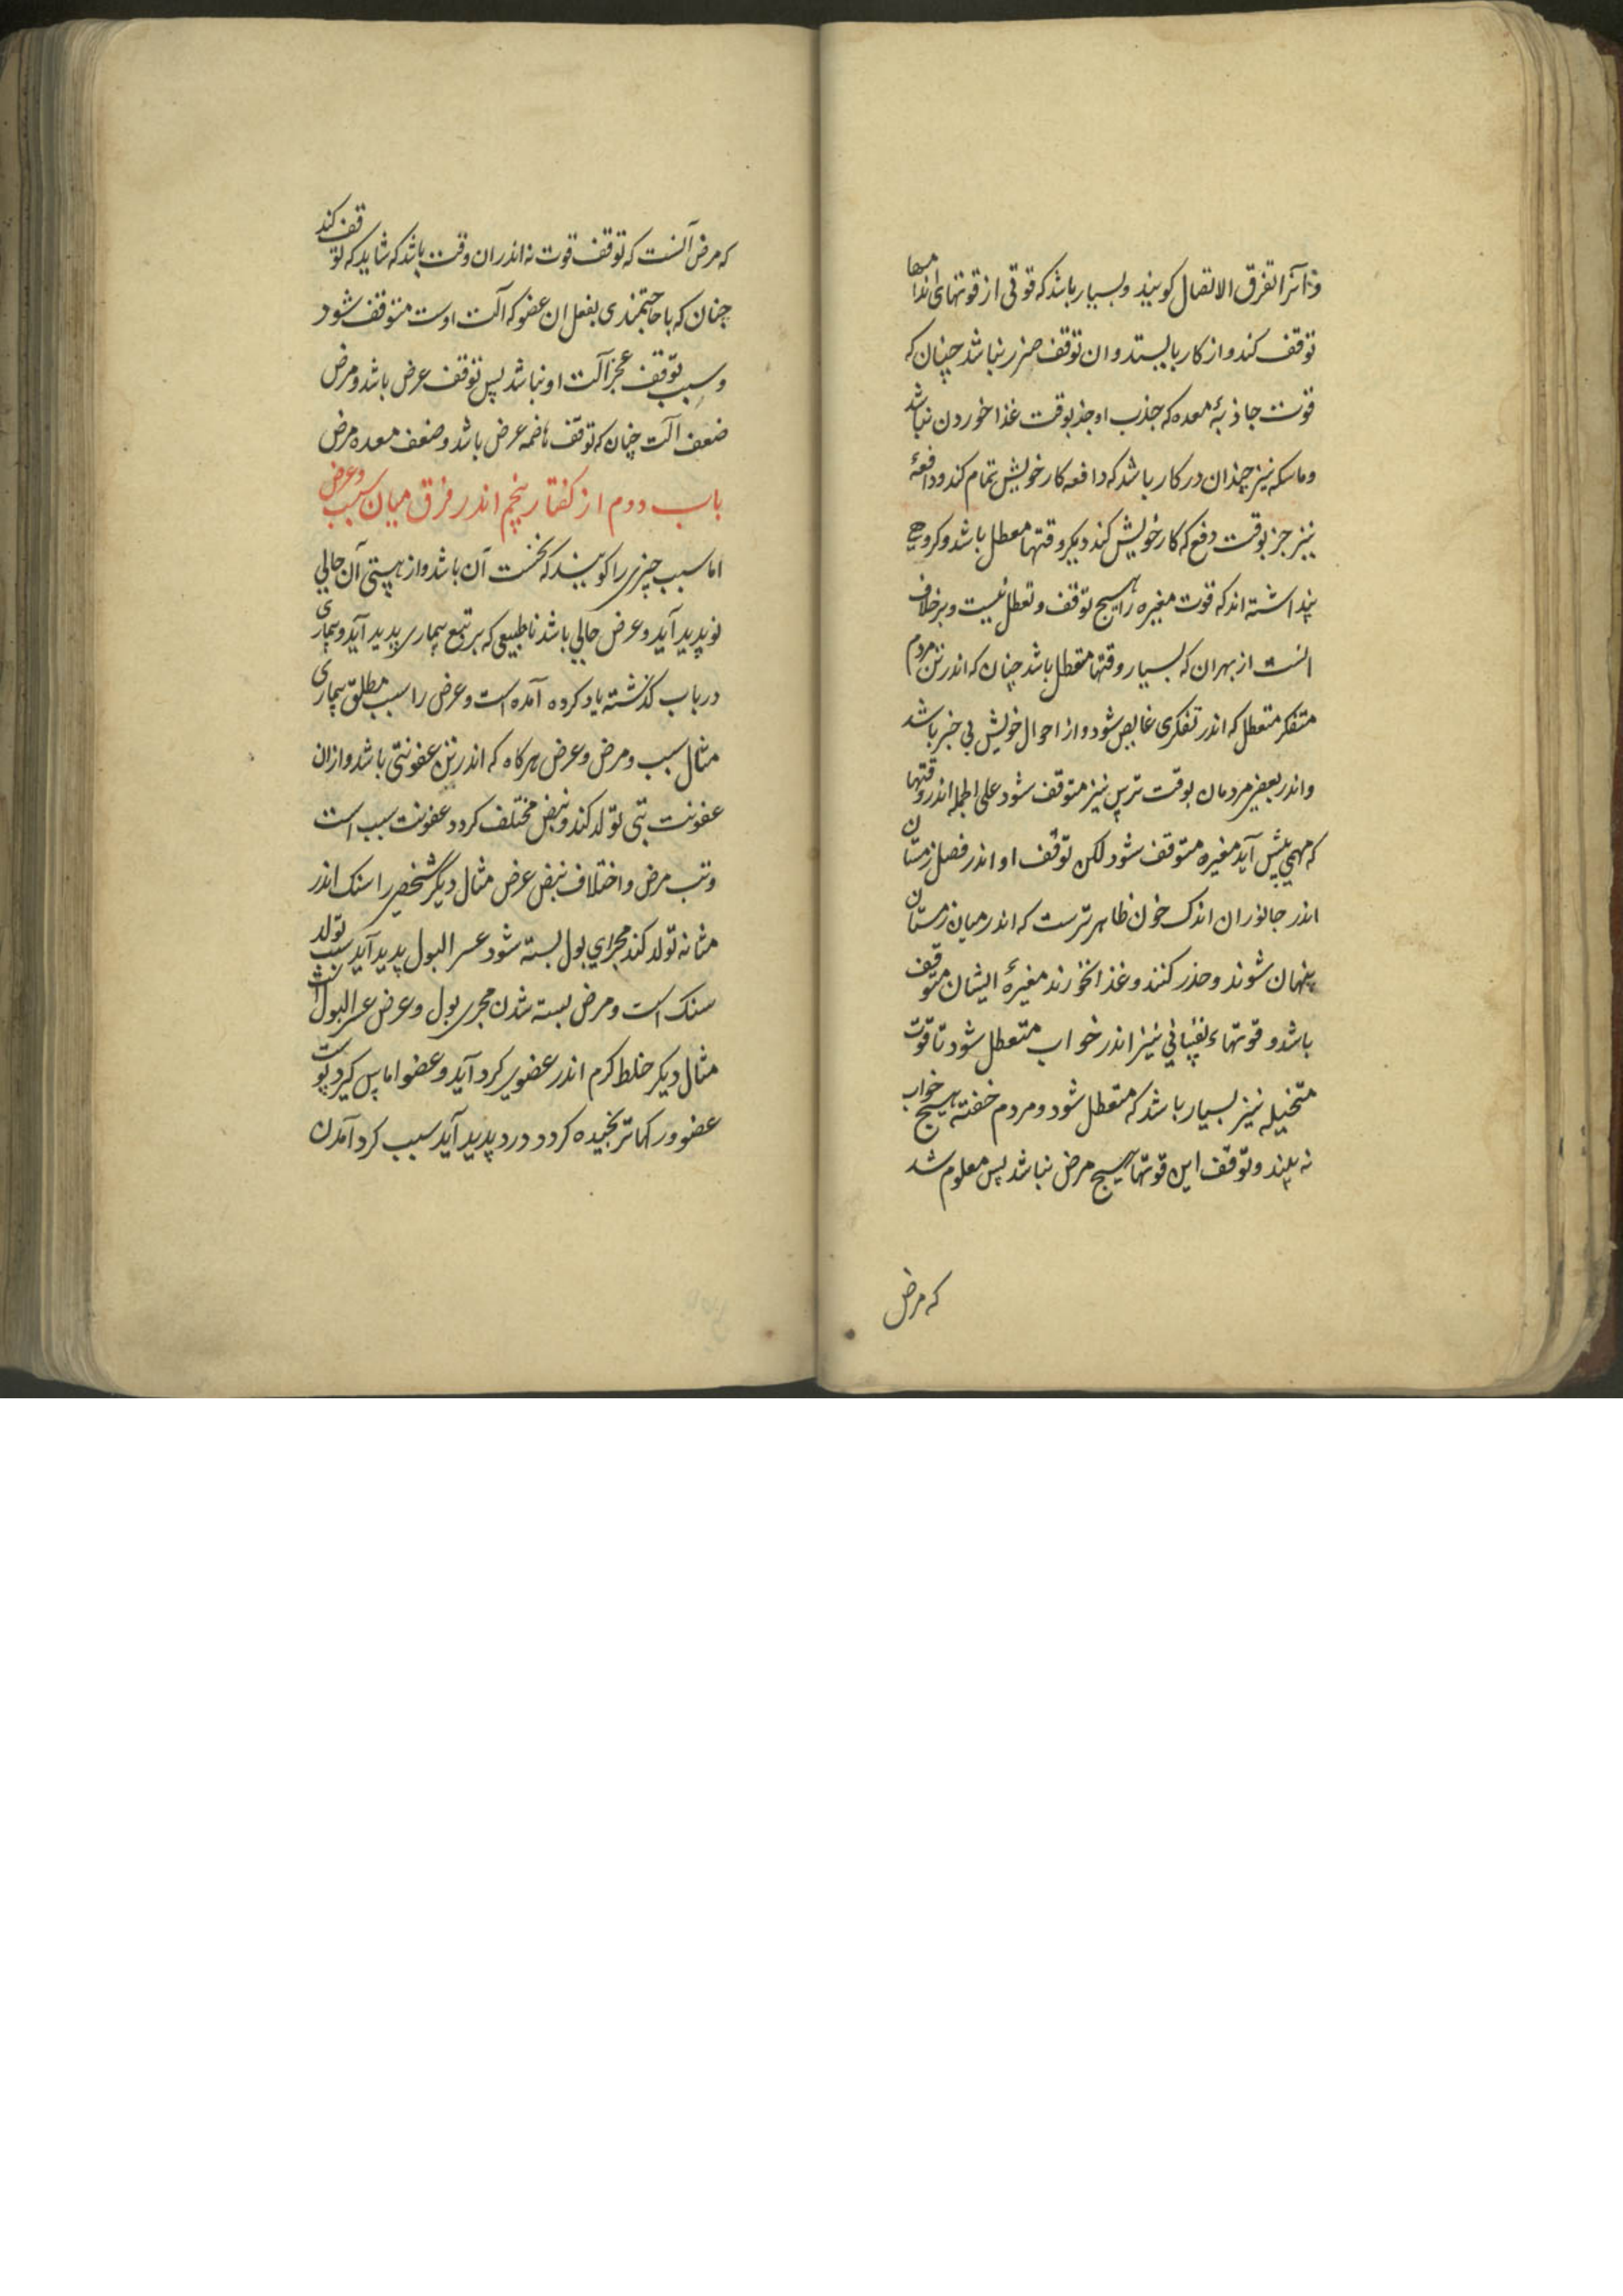 و آنرا تفرق الاتصال کویند و بسیار باشد که قوتی از قوتهای اندامها
توقف کند و از کار بایستد و ان توقف ضرر نباشد چنان که
قوت جاذبهٔ معده که جذب او جز بوقت غذا خوردن نباشد
و ماسکه نیز چندان در کار باشد که دافعه کار خویش تمام کند و دافعهٔ
نیز جز بوقت دفع که کار خویش کند دیکر وقتها معطل باشد و کروهی
پنداشته اند که قوت مغیره را هیچ توقف و تعطل نیست و بر خلاف
انست از بهران که بسیار وقتها متعطل باشد چنان که اندر تن مردم
متفکر متعطل که اندر تفکری غایص شود و از احوال خویش بی خبر باشد
و اندر بعضی مردمان بوقت ترس نیز متوقف شود علی الجمله اندر وقتها
که مهمی پیش آید مغیره متوقف شود لکن توقف او اندر فصل زمستان
اندر جانوران اندک خون ظاهر ترست که اندر میان زمستان
پنهان شوند و حذر کنند و غذا نخورند مغیرهٔ ایشان متوقف
باشد و قوتهاء نفسانی نیز اندر خواب متعطل شود تا قوت
متخیله نیز بسیار باشد که متعطل شود و مردم خفته هیچ خواب
نه بیند و توقف این قوتها هیچ مرض نباشد پس معلوم شد
که مرض
که مرض آنست که توقف قوت نه اندران وقت باشد که شاید که توقف کند
چنان که با حاجتمندی بفعل ان عضو که آلت اوست متوقف شود
و سبب توقف عجز آلت او نباشد پس توقف عرض باشد و مرض
ضعف آلت چنان که توقف هاضمه عرض باشد و ضعف معده مرض
باب دوم از کفتار پنجم اندر فرق میان سبب و عرض
اما سبب چیزی را کویند که نخست آن باشد و از هستی آن حالی
نو پدید آید و عرض حالی باشد ناطبیعی که بر تبع بیماری پدید آید و بیماری
در باب کذشته یاد کرده آمده است و عرض را سبب مطلق بیماری
مثال سبب و مرض و عرض هرکاه که اندر تن عفونتی باشد و ازان
عفونت تبی تولد کند و نبض مختلف کردد عفونت سبب است
و تب مرض و اختلاف نبض عرض مثال دیگر شخصی را سنک اندر
مثانه تولد کند مجرای بول بسته شود عسر البول پدید آید سبب تولد
سنک است و مرض بسته شدن مجری بول و عرض عسر البول است
مثال دیکر خلط کرم اندر عضوی کرد آید و عضو اماس کیرد پوست
عضو و رکها ترنجیده کردد درد پدید آید سبب کرد آمدن